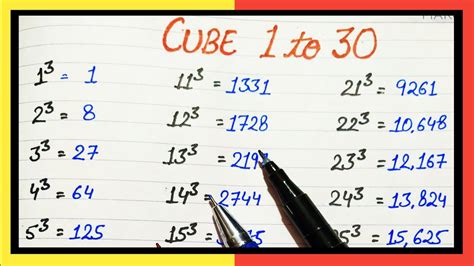 CUBE 1 to 30
1³ = 1
2³ = 8
3³ = 27
4³ = 64
5³ = 125
11³ = 1331
12³ = 1728
13³ = 219
14³ = 2744
15³ =
21³ = 9261
22³ = 10,648
23³ = 12,167
24³ = 13,824
15,625